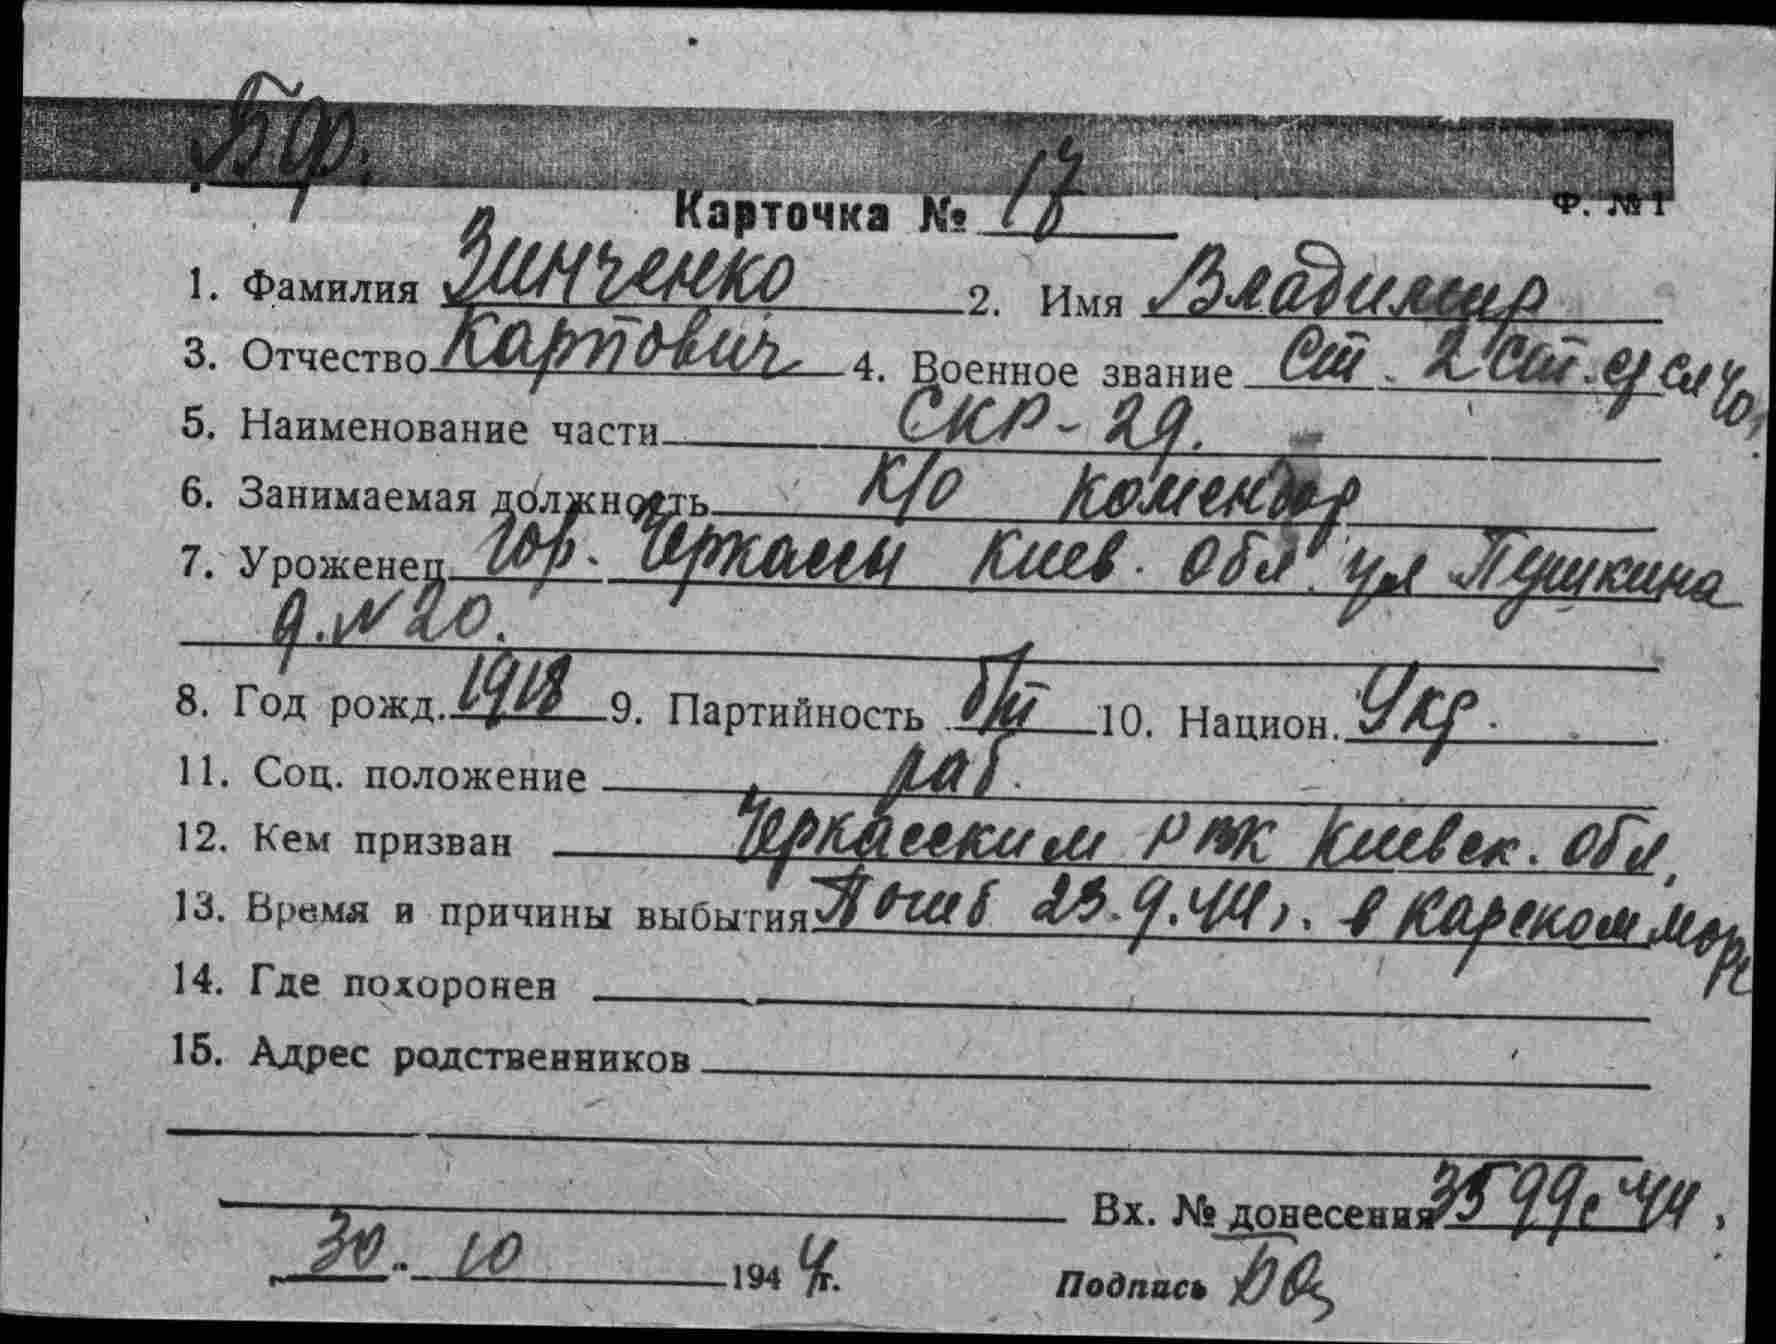 БФ.
Карточка № 17
Ф. № 1
1. Фамилия Зинченко 2. Имя Владимир
3. Отчество Карпович 4. Военное звание Ст. 2 ст.
5. Наименование части СКР-29.
6. Занимаемая должность К/о комендор
7. Уроженец гор. Черкассы Киев. Обл. ул Пушкина
д. N 20.
8. Год рожд. 1918 9. Партийность б/п 10. Национ. Укр.
11. Соц. положение раб.
12. Кем призван Черкасским РВК Киевск. Обл.
13. Время и причины выбытия Погиб 23.9.44г. в Карском море
14. Где похоронен
15. Адрес родственников
Вх. № донесения 3599с 44
30. 10 1944г.
Подпись